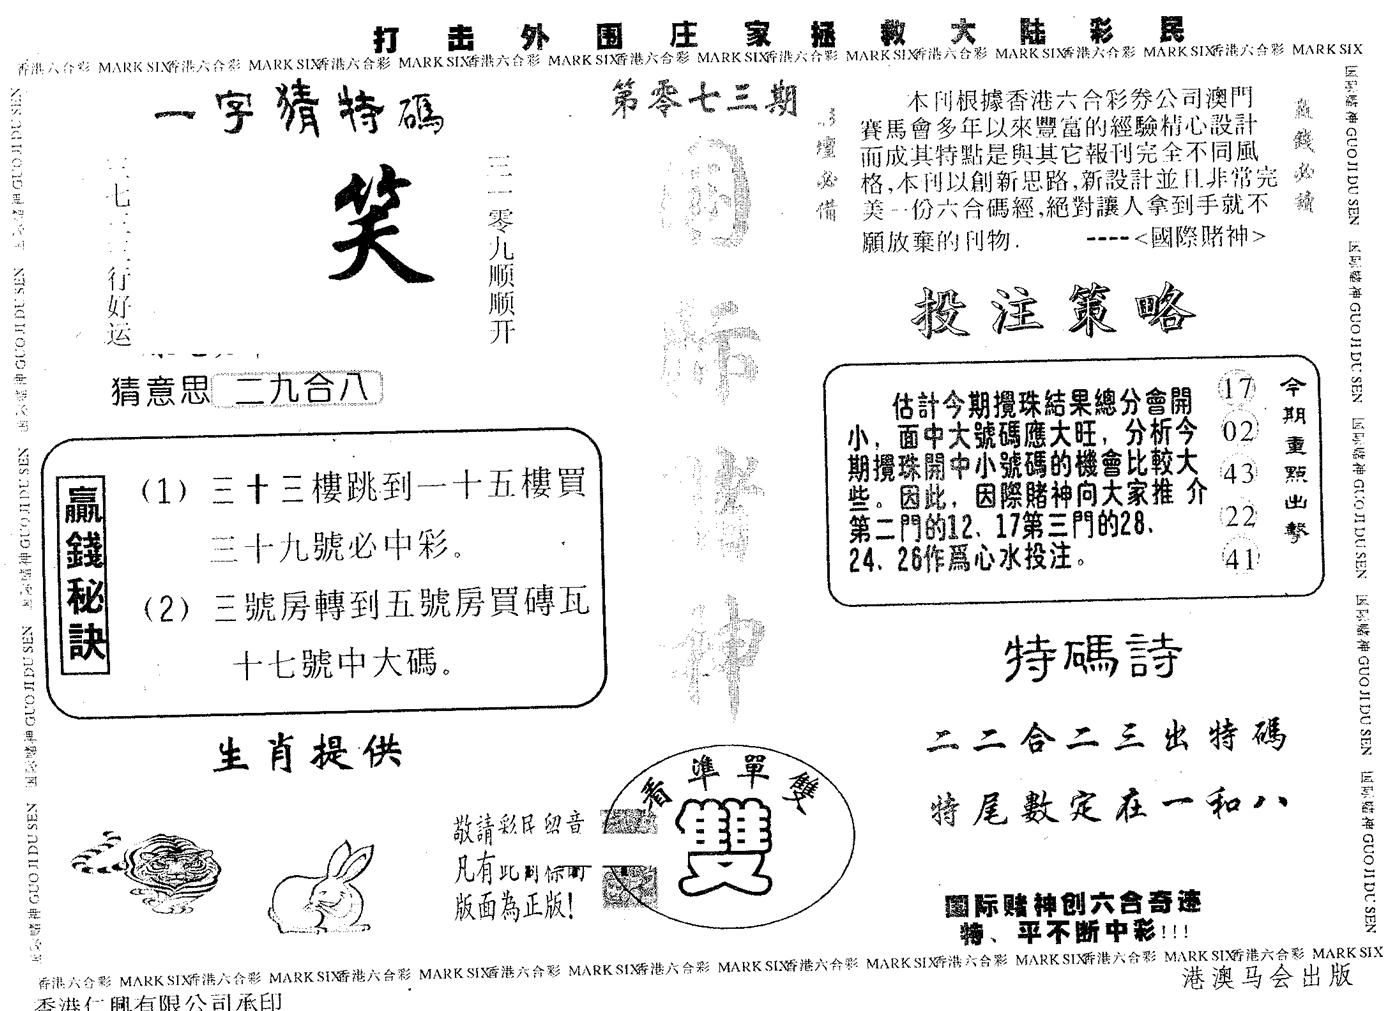 打击外围庄家拯救大陆彩民
香港六合彩 MARK SIX香港六合彩 MARK SIX香港六合彩 MARK SIX香港六合彩 MARK SIX香港六合彩 MARK SIX香港六合彩 MARK SIX香港六合彩 MARK SIX香港六合彩 MARK SIX香港六合彩 MARK SIX
一字猜特碼
三一零九顺顺开
笑
行好运
猜意思 二九合八
贏錢秘訣
(1) 三十三樓跳到一十五樓買
三十九號必中彩。
(2) 三號房轉到五號房買磚瓦
十七號中大碼。
生肖提供
敬請彩民留音
凡有此
版面為正版!
第零七三期
国际赌神
壇必備
看準單雙
雙
本刊根據香港六合彩券公司澳門
賽馬會多年以來豐富的經驗精心設計
而成其特點是與其它報刊完全不同風
格,本刊以創新思路,新設計並且非常完
美一份六合碼經,絕對讓人拿到手就不
願放棄的刊物. ----<國際賭神>
贏錢必讀
投注策略
估計今期攪珠結果總分會開
小，面中大號碼應大旺，分析今
期攪珠開中小號碼的機會比較大
些。因此，因際賭神向大家推 介
第二門的12、17第三門的28、
24、26作爲心水投注。
17
02
43
22
41
今期重點出擊
特碼詩
二二合二三出特碼
特尾數定在一和八
国际赌神创六合奇迹
特、平不断中彩!!!
国际赌神 GUO JI DU SEN 国际赌神 GUO JI DU SEN 国际赌神 GUO JI DU SEN 国际赌神 GUO JI DU SEN 国际赌神 GUO JI DU SEN
香港六合彩 MARK SIX香港六合彩 MARK SIX香港六合彩 MARK SIX香港六合彩 MARK SIX香港六合彩 MARK SIX香港六合彩 MARK SIX香港六合彩 MARK SIX香港六合彩 MARK SIX香港六合彩 MARK SIX
港澳马会出版
香港仁興有限公司承印